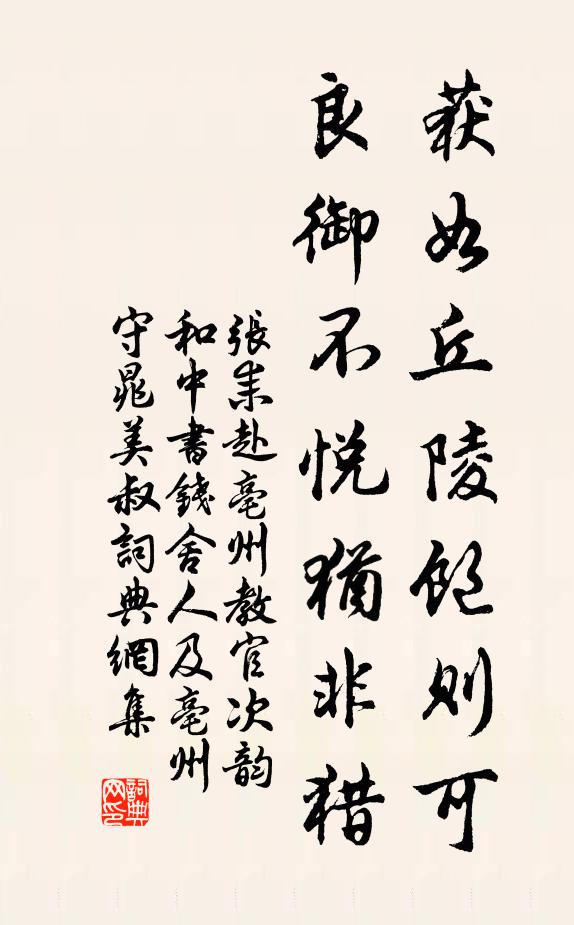 获如丘陵飽則可
良御不悦猶非猎
張耒赴亳州教官次韵
和中書錢舍人及亳州
守晁美叔詞典網集
詞典网印